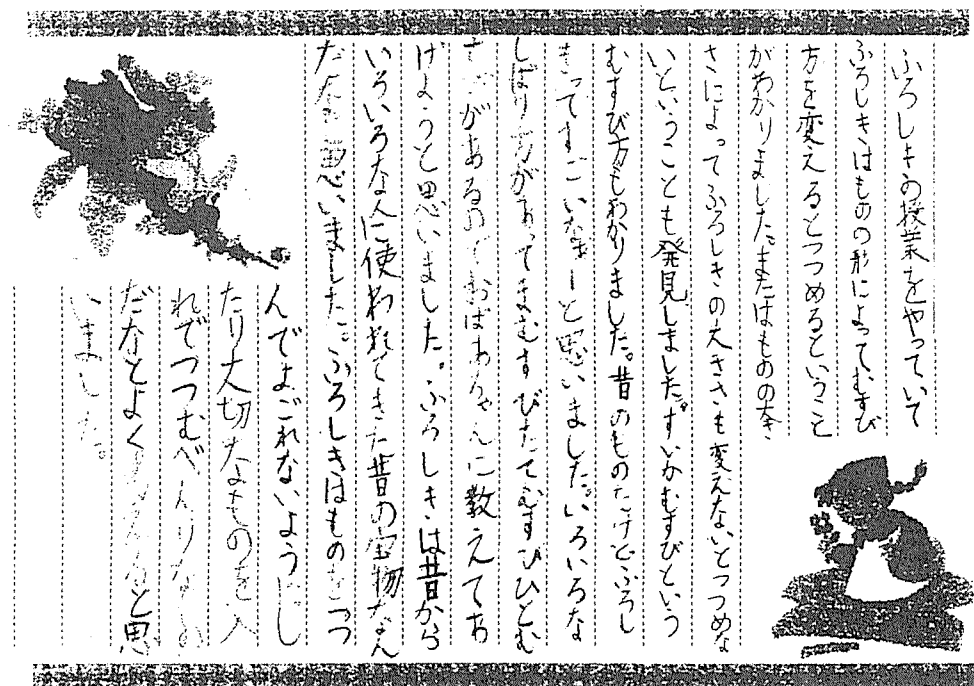 ふろしきの授業をやっていて
ふろしきはものの形によってむすび
方を変えるとつつめるということ
がわかりました。またはものの大き
さによってふろしきの大きさも変えないとつつめな
いということも発見しました。すいかむすびという
むすび方もわかりました。昔のものだけどふろし
きってすごいなぁーと思いました。いろいろな
しばり方があってまむすびたてむすびひとむ
すびがあるのでおばあちゃんに教えてあ
げようと思いました。ふろしきは昔から
いろいろな人に使われてきた昔の宝物なん
だなと思いました。ふろしきはものをつつ
んでよごれないようにし
たり大切なものを入
れてつつむべんりなぬ
だなとよく と思
いました。